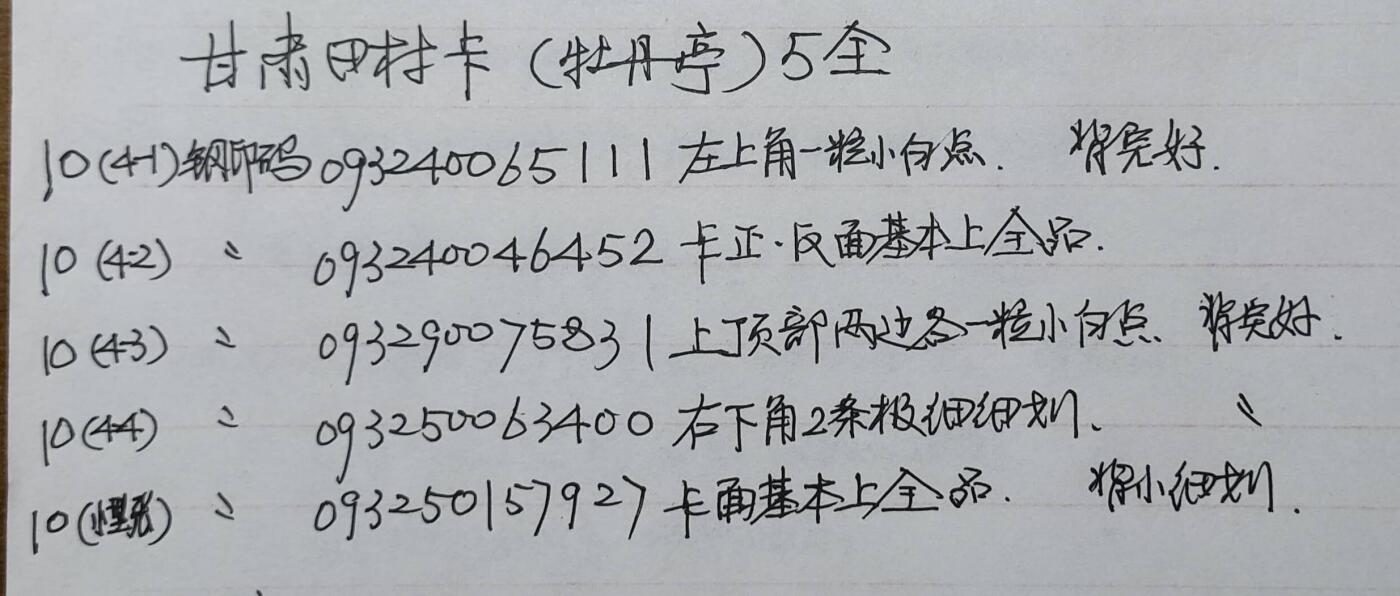 甘肃田村卡（牡丹亭）5全
10(4-1)钢印码 093240065111 左上角一粒小白点. 背完好.
10(4-2) 〃 093240046452 卡正·反面基本上全品.
10(4-3) 〃 093290075831 上顶部两边各一粒小白点. 背完好.
10(4-4) 〃 093250063400 右下角2条极细细划. 〃
10(小型张) 〃 093250157927 卡面基本上全品. 背小细划.